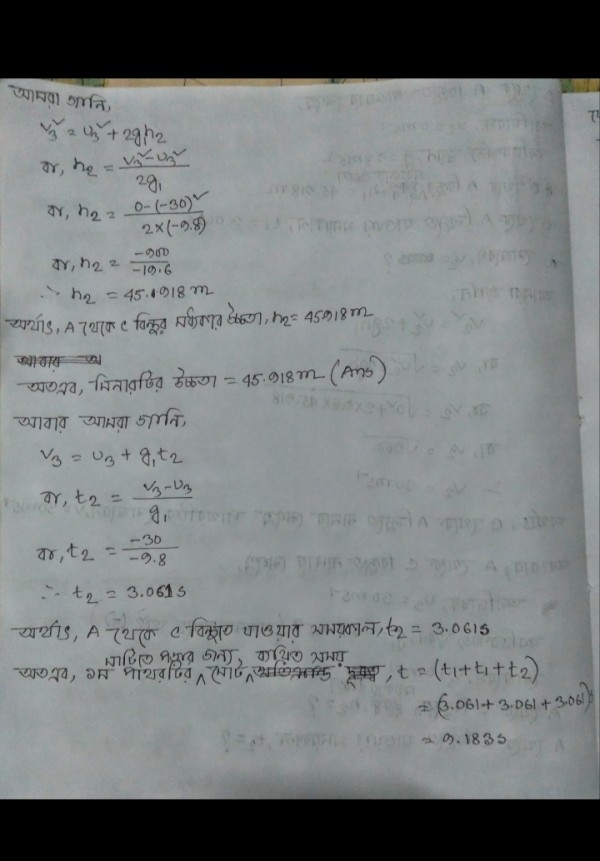 আমরা জানি,
v₃² = u₃² + 2g₁h₂
বা, h₂ = (v₃² - u₃²)/2g₁
বা, h₂ = (0-(-30)²)/(2×(-9.8))
বা, h₂ = -900/-19.6
∴ h₂ = 45.918 m
অর্থাৎ, A থেকে C বিন্দুর মধ্যকার উচ্চতা, h₂ = 45.918 m
আবার অ
অতএব, মিনারটির উচ্চতা = 45.918 m (Ans)
আবার আমরা জানি,
v₃ = u₃ + g₁t₂
বা, t₂ = (v₃ - u₃)/g₁
বা, t₂ = -30/-9.8
∴ t₂ = 3.061s
অর্থাৎ, A থেকে C বিন্দুতে যাওয়ার সময়কাল, t₂ = 3.061s
মাটিতে পড়ার জন্য, ব্যয়িত সময়
অতএব, ১ম পাথরটির মোট, t = (t₁ + t₁ + t₂)
= (3.061 + 3.061 + 3.061)
= 9.183s